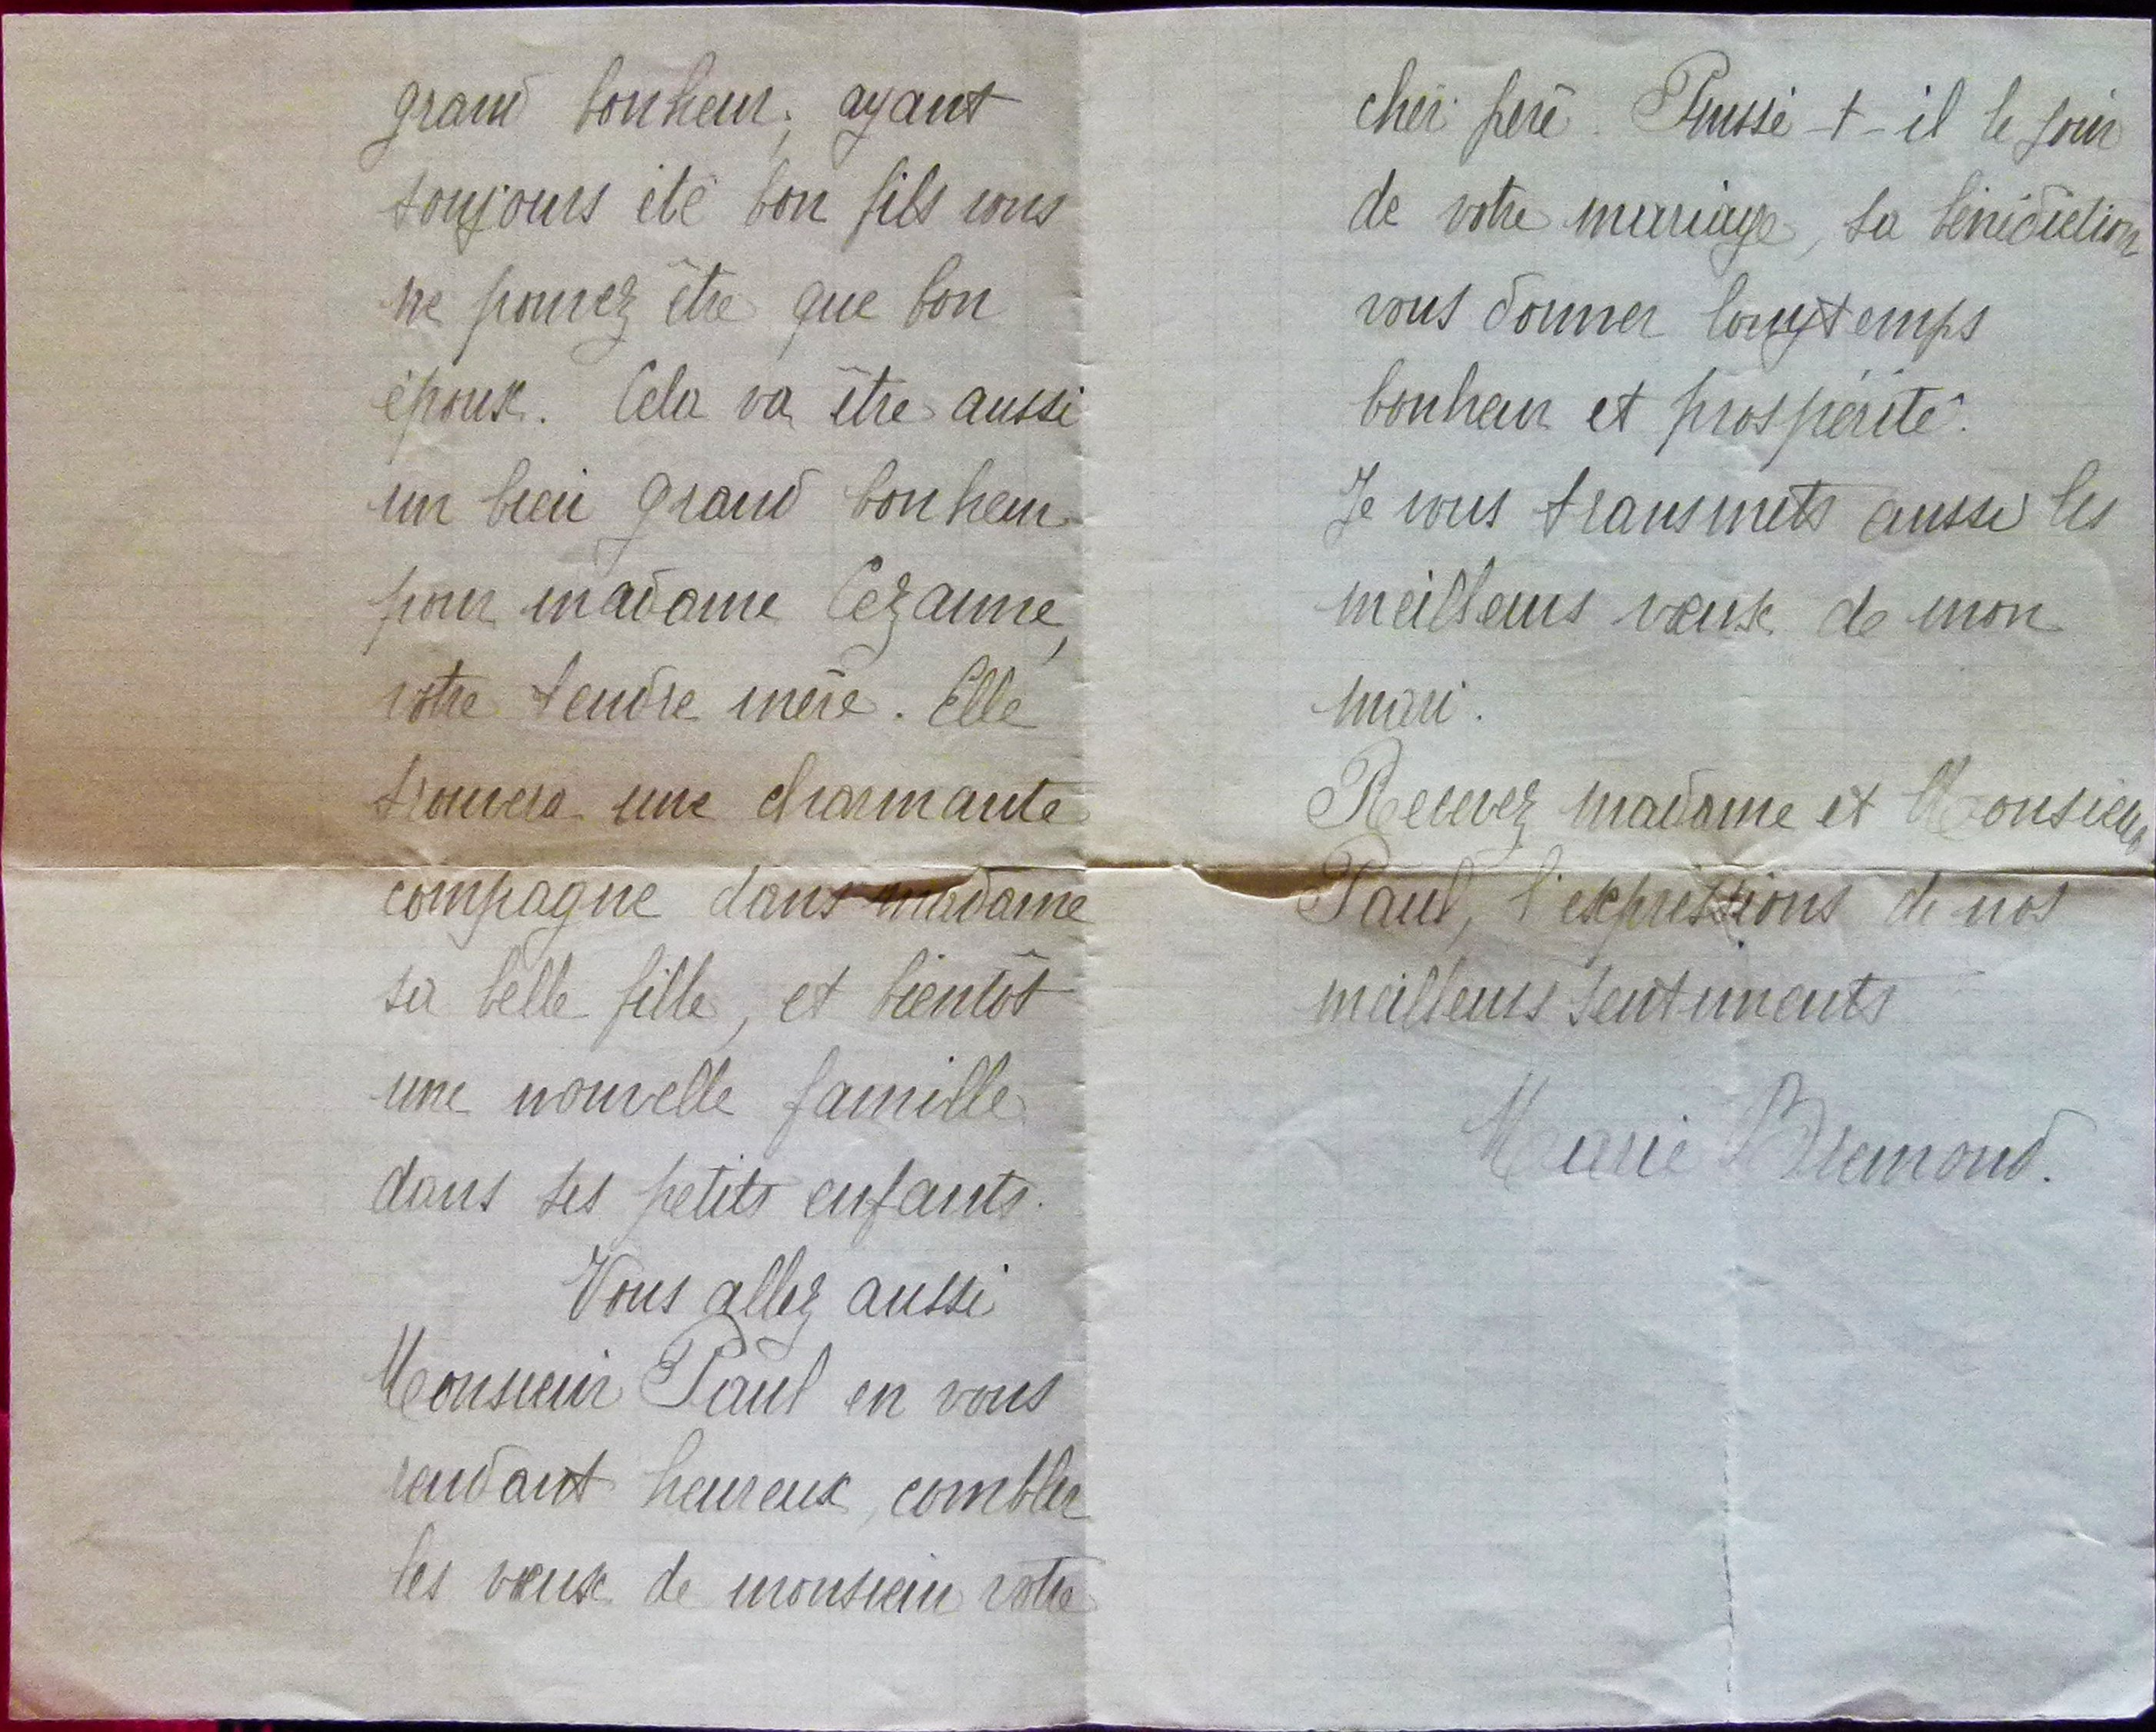 grand bonheur, ayant
toujours été bon fils vous
ne pouvez être que bon
époux. Cela va être aussi
un bien grand bonheur
pour madame Cézanne,
votre tendre mère. Elle
trouvera une charmante
compagne dans madame
sa belle fille, et bientôt
une nouvelle famille
dans ses petits enfants.
Vous allez aussi
Monsieur Paul en vous
rendant heureux, combler
les vœux de monsieur votre
cher père. Puisse-t-il le jour
de votre mariage, sa bénédiction
vous donner longtemps
bonheur et prospérité.
Je vous transmets aussi les
meilleurs vœux de mon
mari.
Recevez madame et Monsieur
Paul, l'expressions de nos
meilleurs sentiments
Marie Bremond.